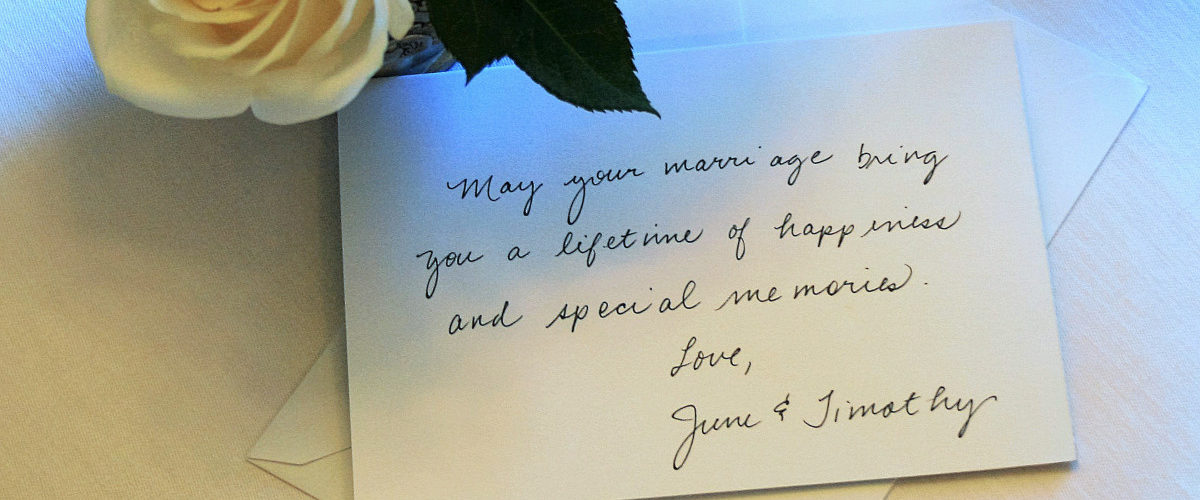 May your marriage bring
you a lifetime of happiness
and special memories.
Love,
June & Timothy